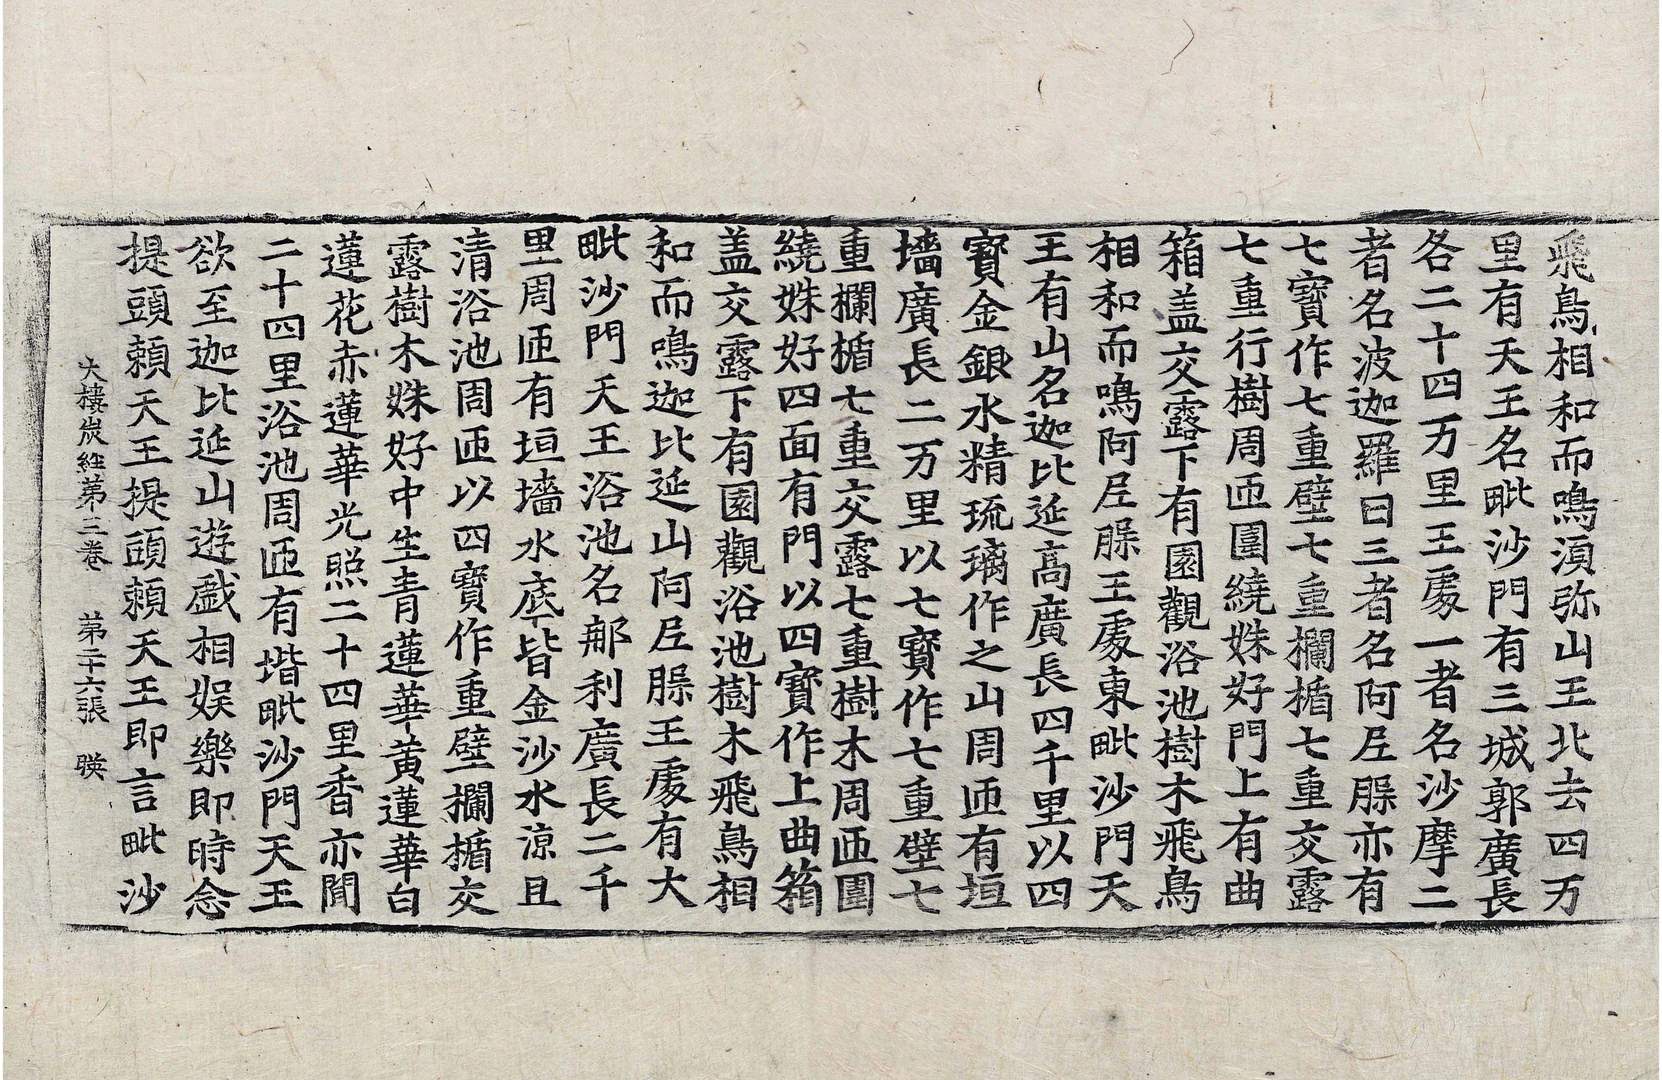 飛鳥相和而鳴湏弥山王北去四万
里有天王名毗沙門有三城郭廣長
各二十四万里王䖏一者名沙摩二
者名波迦羅曰三者名阿𡰱𦜕亦有
七寶作七重壁七重欄楯七重交露
七重行樹周匝圍繞姝好門上有曲
箱盖交露下有園觀浴池樹木飛鳥
相和而鳴阿𡰱𦜕王䖏東毗沙門天
王有山名迦比延高廣長四千里以四
寶金銀水精琉璃作之山周匝有垣
墻廣長二万里以七寶作七重壁七
重欄楯七重交露七重樹木周匝圍
繞姝好四面有門以四寶作上曲箱
盖交露下有園觀浴池樹木飛鳥相
和而鳴迦比延山阿𡰱𦜕王䖏有大
毗沙門天王浴池名郍利廣長二千
里周匝有垣墻水底皆金沙水涼且
清浴池周匝以四寶作重壁欄楯交
露樹木姝好中生青蓮華黄蓮華白
蓮花赤蓮華光照二十四里香亦聞
二十四里浴池周匝有堦毗沙門天王
欲至迦比延山遊戯相娱樂即時念
提頭賴天王提頭賴天王即言毗沙
大樓炭經第三卷　第二十六張　暎